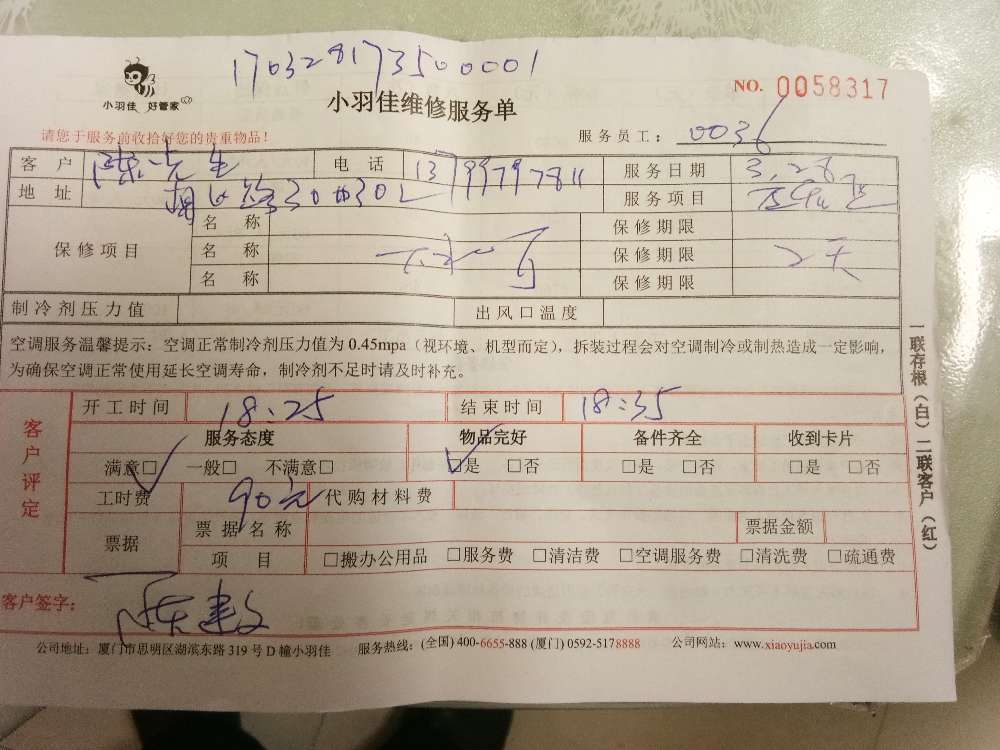 17032817350001
小羽佳 好管家
NO. 0058317
小羽佳维修服务单
请您于服务前收拾好您的贵重物品！
服务员工： 0036
客户 陈先生 电话 13799797811 服务日期 3.28
地址 服务项目
保修项目 名称 保修期限
名称 保修期限 2天
名称 保修期限
制冷剂压力值 出风口温度
空调服务温馨提示：空调正常制冷剂压力值为 0.45mpa（视环境、机型而定），拆装过程会对空调制冷或制热造成一定影响，
为确保空调正常使用延长空调寿命，制冷剂不足时请及时补充。
客户评定
开工时间 18:25 结束时间 18:35
服务态度 物品完好 备件齐全 收到卡片
满意□ 一般□ 不满意□ □是 □否 □是 □否 □是 □否
工时费 90元 代购材料费
票据 票据名称 票据金额
项目 □搬办公用品 □服务费 □清洁费 □空调服务费 □清洗费 □疏通费
客户签字： 陈建文
公司地址：厦门市思明区湖滨东路 319 号 D 幢小羽佳 服务热线：(全国) 400-6655-888 (厦门) 0592-5178888 公司网站：www.xiaoyujia.com
一联存根（白）二联客户（红）